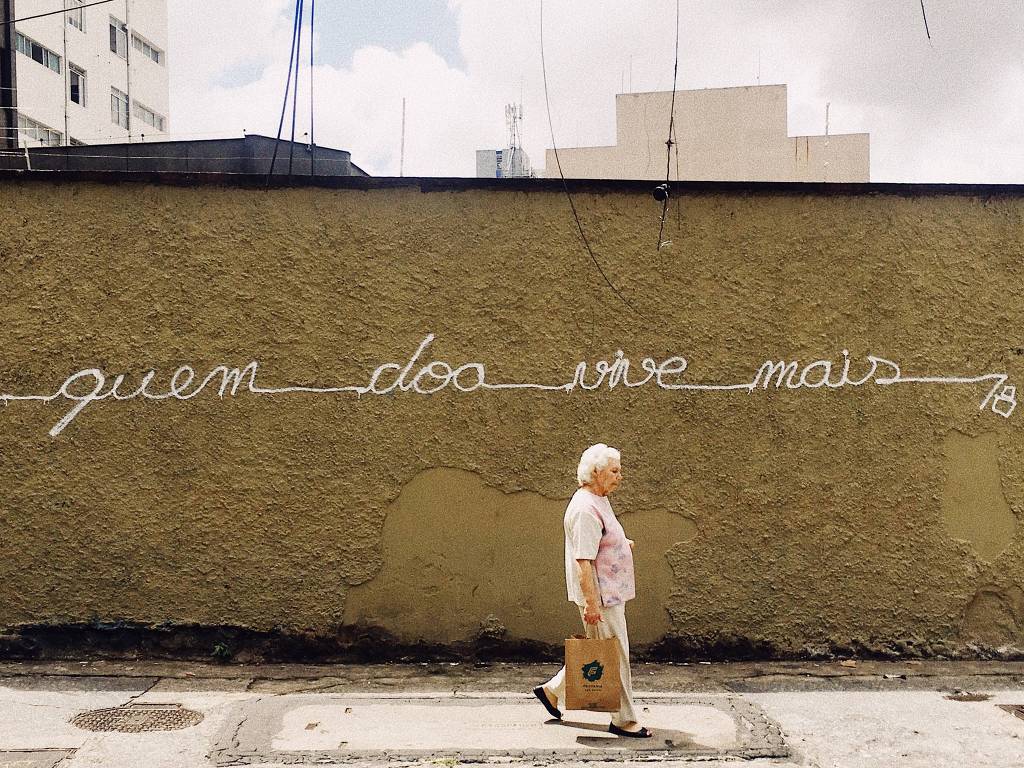 quem doa vive mais